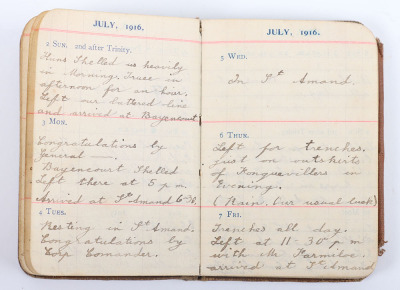 JULY, 1916.
2 SUN. 2nd after Trinity.
Huns Shelled us heavily
in Morning. Truce in
afternoon for an hour.
Left our battered line
and arrived at Bayencourt
3 MON.
Congratulations by
General —.
Bayencourt Shelled
Left there at 5 p.m.
Arrived at St Amand 6-30.
4 TUES.
Resting in St Amand.
Congratulations by
Corp Comander.
JULY, 1916.
5 WED.
In St Amand.
6 THUR.
Left for trenches.
Just on outskirts
of Fonquevillers in
Evening.
(Rain. Our usual luck)
7 FRI.
Trenches all day.
Left at 11-30 p m
with Mr Farmiloe.
arrived at St Amand